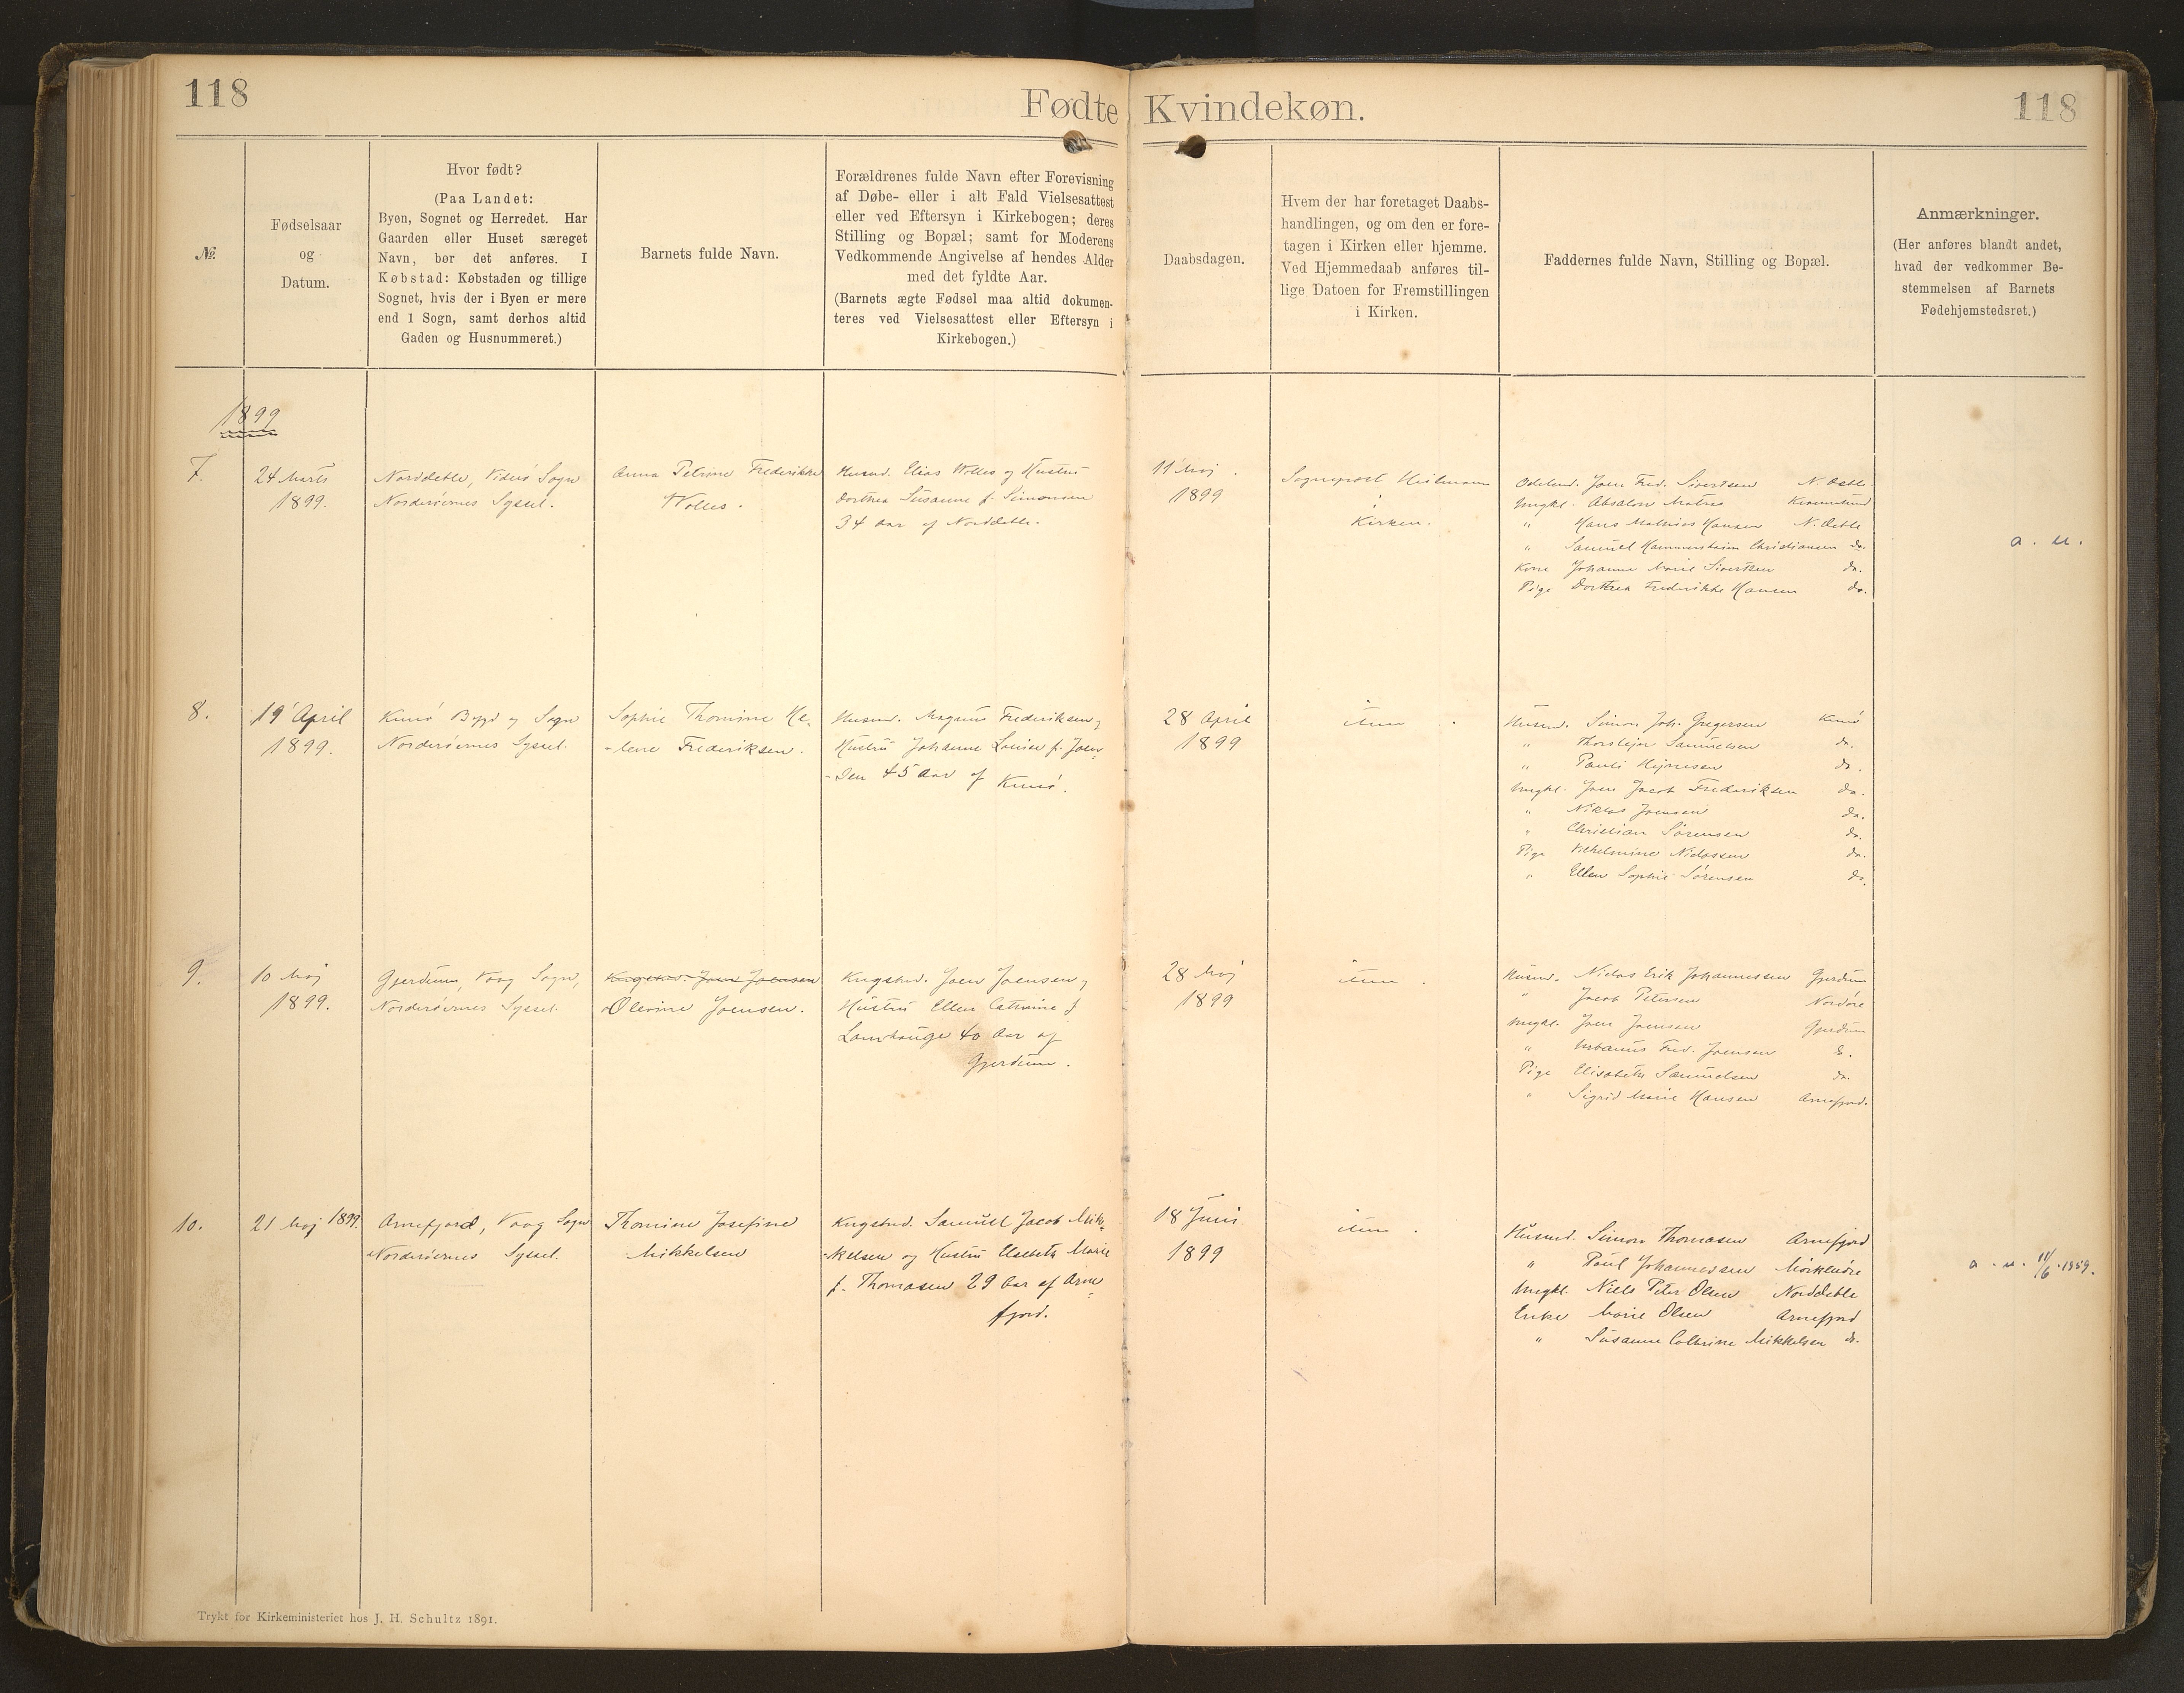 118
Fødte Kvindekøn.
118
№
Fødselsaar
og
Datum.
Hvor født?
(Paa Landet:
Byen, Sognet og Herredet. Har
Gaarden eller Huset særeget
Navn, bør det anføres. I
Købstad: Købstaden og tillige
Sognet, hvis der i Byen er mere
end 1 Sogn, samt derhos altid
Gaden og Husnummeret.)
Barnets fulde Navn.
Forældrenes fulde Navn efter Forevisning
af Døbe- eller i alt Fald Vielsesattest
eller ved Eftersyn i Kirkebogen; deres
Stilling og Bopæl; samt for Moderens
Vedkommende Angivelse af hendes Alder
med det fyldte Aar.
(Barnets ægte Fødsel maa altid dokumen-
teres ved Vielsesattest eller Eftersyn i
Kirkebogen.)
Daabsdagen.
Hvem der har foretaget Daabs-
handlingen, og om den er fore-
tagen i Kirken eller hjemme.
Ved Hjemmedaab anføres til-
lige Datoen for Fremstillingen
i Kirken.
Faddernes fulde Navn, Stilling og Bopæl.
Anmærkninger.
(Her anføres blandt andet,
hvad der vedkommer Be-
stemmelsen af Barnets
Fødehjemstedsret.)
1899
7.
24 Marts
1899.
Norddeble, Viderø Sogn
Norderøernes Syssel.
Anna Petrine Frederikke
Wolles.
Husmd. Elias Wolles og Hustru
Dorthea Susanne f. Simonsen
34 Aar af Norddeble.
11 Maj.
1899
Sogneprest Heilmann
i
Kirken.
Odelsmd. Joen Fred. Sivertsen N. Deble
Ungkl. Absalon Matras
" Hans Mathias Hansen N. Deble
" Samuel Hammershaim Christiansen do.
Kone Johanne Marie Sivertsen do.
Pige Dorthea Frederikke Hansen do.
a. u.
8.
19 April
1899.
Kunø Bygd og Sogn
Norderøernes Syssel.
Sophie Thomine He-
-lene Frederiksen.
Husmd. Magnus Frederiksen og
Hustru Johanne Louise f. Joen-
-sen 45 Aar af Kunø.
28 April
1899
item.
Husmd. Simon Joh. Gregersen Kunø
" Thorslejur Samuelsen do.
" Pauli Hejnesen do.
Ungkl. Joen Jacob Frederiksen do.
" Niklas Joensen do.
" Christian Sørensen do.
Pige Vilhelmine Niclassen do.
" Ellen Sophie Sørensen do.
9.
10 Maj
1899.
Gjerdum, Vaag Sogn,
Norderøernes Syssel.
Kngsfmd. Joen Joensen
Olevine Joensen.
Kngsfmd. Joen Joensen og
Hustru Ellen Cathrine f
Lamhauge 40 Aar af
Gjerdum.
28 Maj
1899
item.
Husmd. Niclas Erik Johannessen Gjerdum
" Jacob Petersen Nordøre
Ungkl. Joen Joensen Gjerdum
" Urbanus Fred. Joensen do.
Pige Elisabeth Samuelsen do.
" Sigrid Marie Hansen Arnefjord.
10.
21 Maj 1899.
Arnefjord, Vaag Sogn
Norderøernes Syssel.
Thomine Josefine
Mikkelsen
Kngsfmd. Samuel Jacob Mik-
-kelsen og Hustru Elsebeth Marie
f. Thomasen 29 Aar af Arne-
fjord.
18 Juni
1899
item.
Husmd. Simon Thomasen Arnefjord
" Poul Johannessen Mørkeøre
Ungkl. Niels Peter Olsen Norddeble
Enke Marie Olsen Arnefjord
" Susanne Cathrine Mikkelsen do.
a. u. 11/6.1959.
Trykt for Kirkeministeriet hos J. H. Schultz 1891.